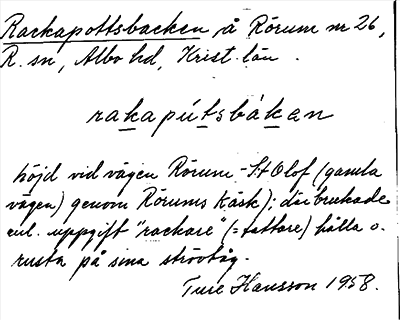 Rackapottsbacken å Rörum nr 26,
R. sn, Albo hd, Krist. län.
rakapútsbákan
höjd vid vägen Rörum - St Olof (gamla
vägen) genom Rörums Kåsk); där brukade
enl. uppgift "rackare" (= tattare) hålla o.
rusta på sina strövtåg.
Ture Hansson 1958.